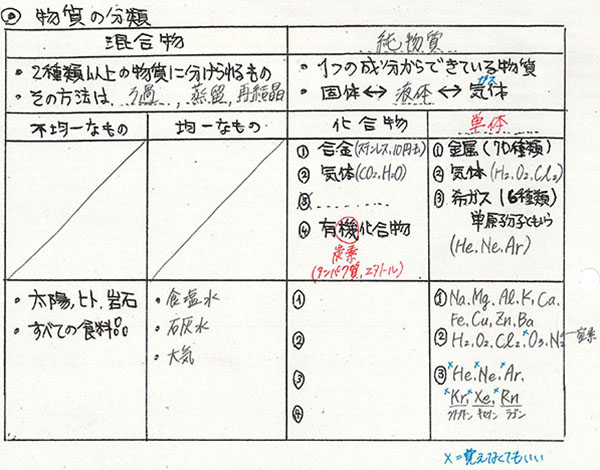 ◎ 物質の分類
混合物
純物質
・2種類以上の物質に分けられるもの
・その方法は、ろ過、蒸留、再結晶
・1つの成分からできている物質
ガス
・固体↔液体↔気体
不均一なもの
均一なもの
化合物
単体
① 合金(ステンレス、10円玉)
② 気体(CO2、H2O)
③
④ 有機化合物
炭素
(タンパク質、エタノール)
① 金属(70種類)
② 気体(H2、O2、Cl2)
③ 希ガス(6種類)
単原子分子ともいう
(He、Ne、Ar)
・太陽、ヒト、岩石
・すべての食料品
・食塩水
・石灰水
・大気
①
②
③
④
① Na、Mg、Al、K、Ca、
Fe、Cu、Zn、Ba
② H2、O2、Cl2、×O3、N2 窒素
③ ×He、×Ne、×Ar、
×Kr、×Xe、×Rn
クリプトン キセノン ラドン
×=覚えなくてもいい